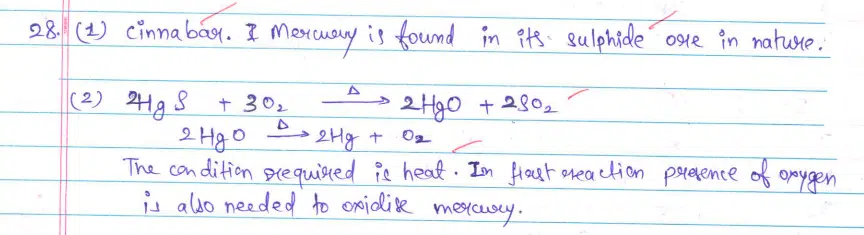 28. (1) cinnabar. Mercury is found in its sulphide ore in nature.
(2) 2HgS + 3O₂ —Δ→ 2HgO + 2SO₂
2HgO —Δ→ 2Hg + O₂
The condition required is heat. In first reaction presence of oxygen
is also needed to oxidise mercury.